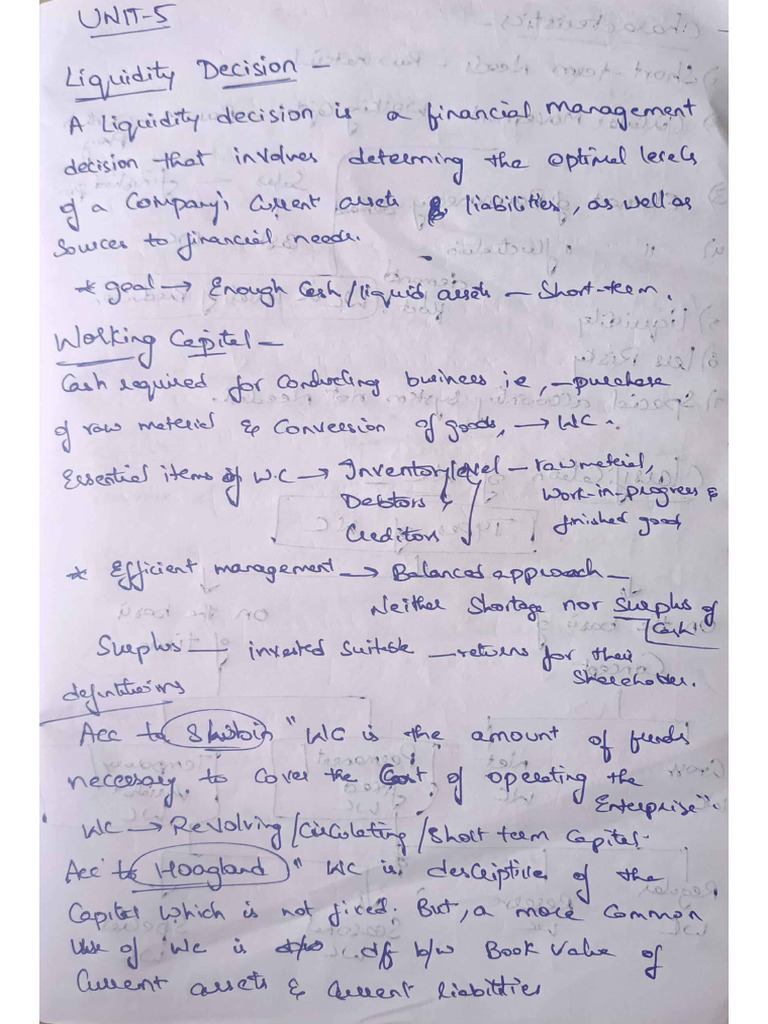 UNIT-5
Liquidity Decision -
A Liquidity decision is a financial management
decision that involves determing the optimal levels
of a Company's Current assets & liabilities, as well as
sources to financial needs.
* goal → Enough Cash/liquid assets - Short-term.
Working Capital -
Cash required for Conducting business ie, - purchase
of raw material & Conversion of goods, → WC.
Essential items of W.C → Inventory level - raw material,
Debtors & work-in-progress &
Creditors finished good
* Efficient management → Balanced approach -
Neither Shortage nor Surplus of
Cash
Surplus - invested suitable - returns for their
Shareholder.
definitions
Acc to Shubin "WC is the amount of funds
necessary to cover the Cost of operating the
Enterprise".
WC → Revolving/Circulating/Short term Capital.
Acc to Hoagland "WC is descriptive of the
Capital which is not fixed. But, a more common
use of WC is df b/w Book Value of
Current assets & Current liabilities